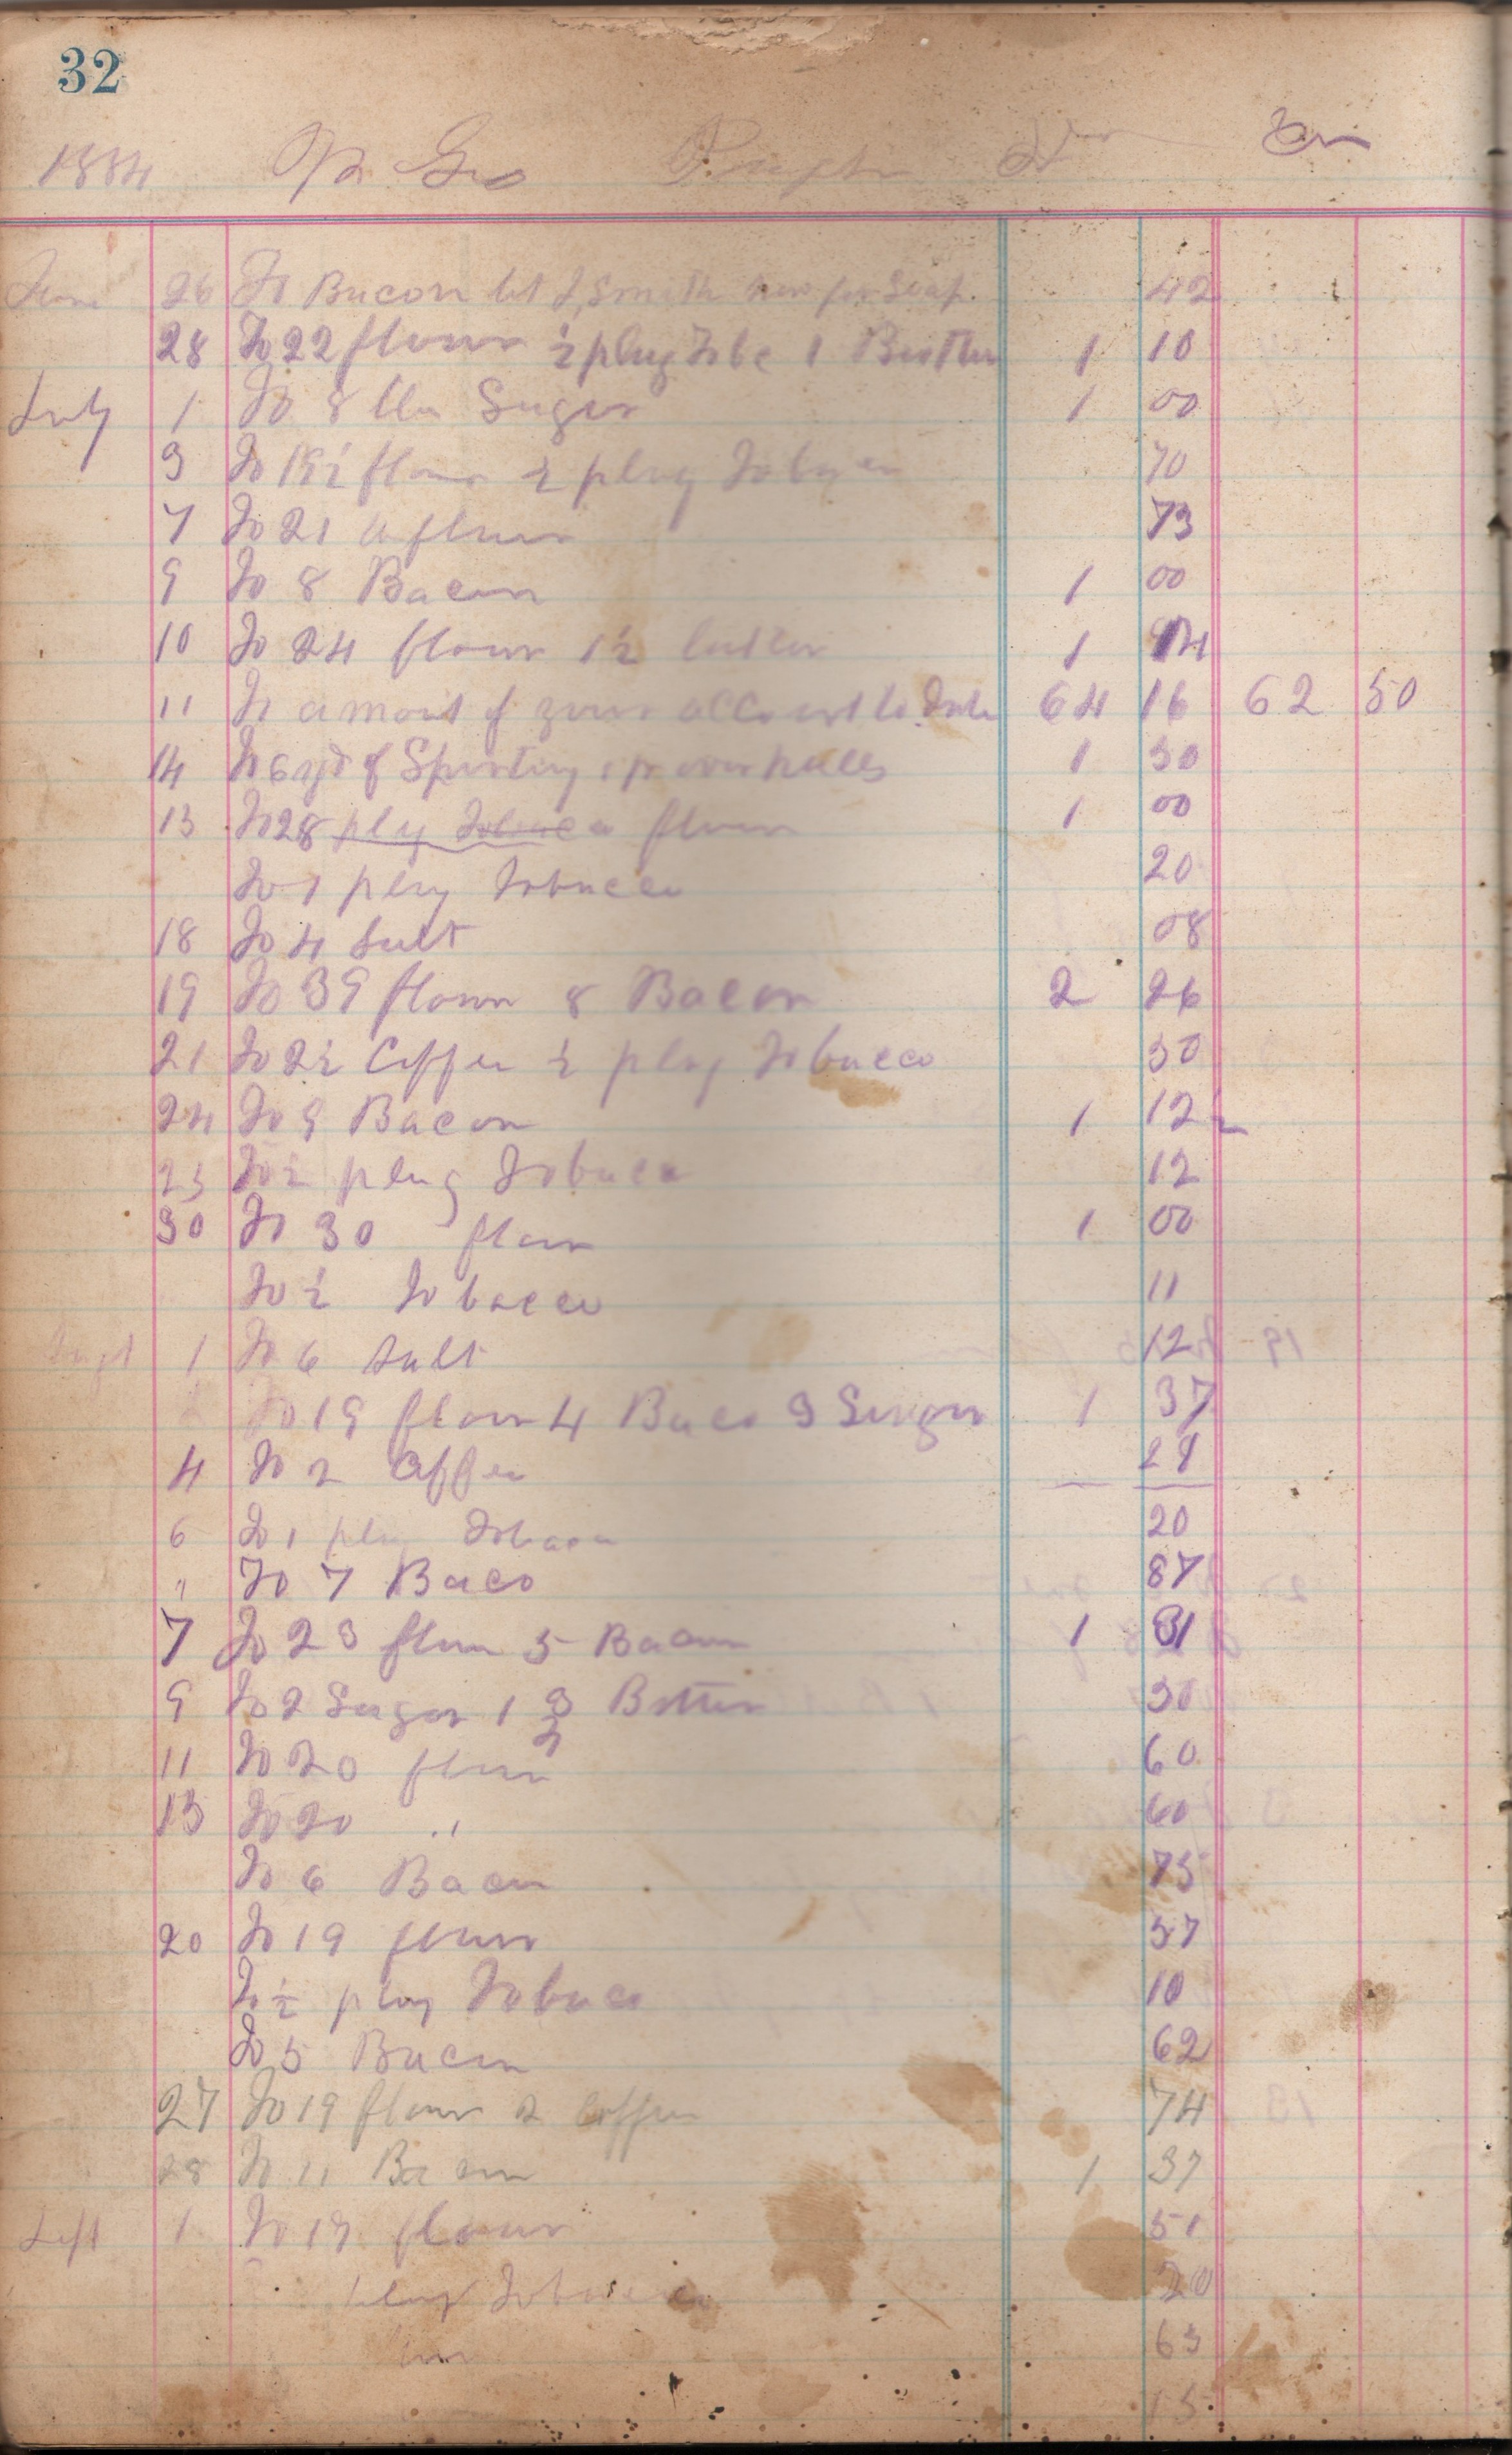 32
1884 Mr Geo Dr Cr
June 26 To Bacon let J, Smith have for Soap 42
28 To 22 flour ½ plug Tobc 1 Butter 1 10
July 1 To 8 lbs Suger 1 00
3 To 18½ flour ½ plug Tobaco 70
7 To 21 lb flour 73
9 To 8 Bacon 1 00
10 To 24 flour 1½ butter 1 14
11 To amout of your account to Date 64 16 62 50
14 To 6 yds of Shirting 1 pr overhalls 1 30
13 To 28 plug Tobaco flour 1 00
To 1 plug Tobacco 20
18 To 4 Salt 08
19 To 39 flour 8 Bacon 2 26
21 To 2½ Coffee ½ plug Tobacco 50
24 To 9 Bacon 1 12½
25 To ½ plug Tobaco 12
30 To 30 flour 1 00
To ½ Tobacco 11
Augt 1 To 6 Salt 12
To 19 flour 4 Baco 3 Suger 1 37
4 To 2 Coffee 28
6 To 1 plug Tobaco 20
" To 7 Baco 87
7 To 23 flour 5 Bacon 1 31
9 To 2 Sugar 1 3/4 Butter 50
11 To 20 flour 60
13 To 20 " 60
To 6 Bacon 75
20 To 19 flour 57
To ½ plug Tobaco 10
To 5 Bacon 62
27 To 19 flour 2 Coffee 74
28 To 11 Bacon 1 37
Sept 1 To 17 flour 51
plug Tobacco 20
63
15